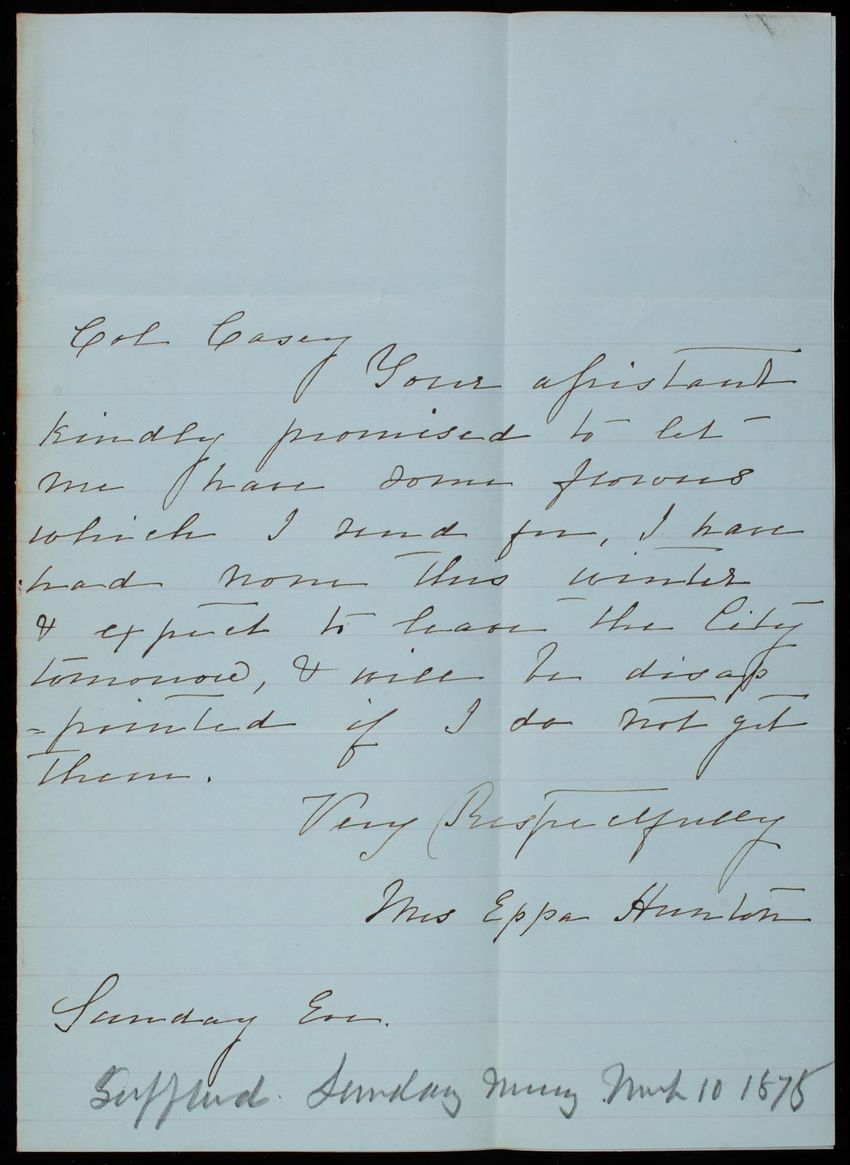 Col Casey
Your assistant
kindly promised to let
me have some flowers
which I send for, I have
had none this winter
& expect to leave the City
tomorrow, & will be disap
=pointed if I do not get
them.
Very Respectfully
Mrs Eppa Hunton
Sunday Eve.
Supplied. Sunday Evening March 10 1878